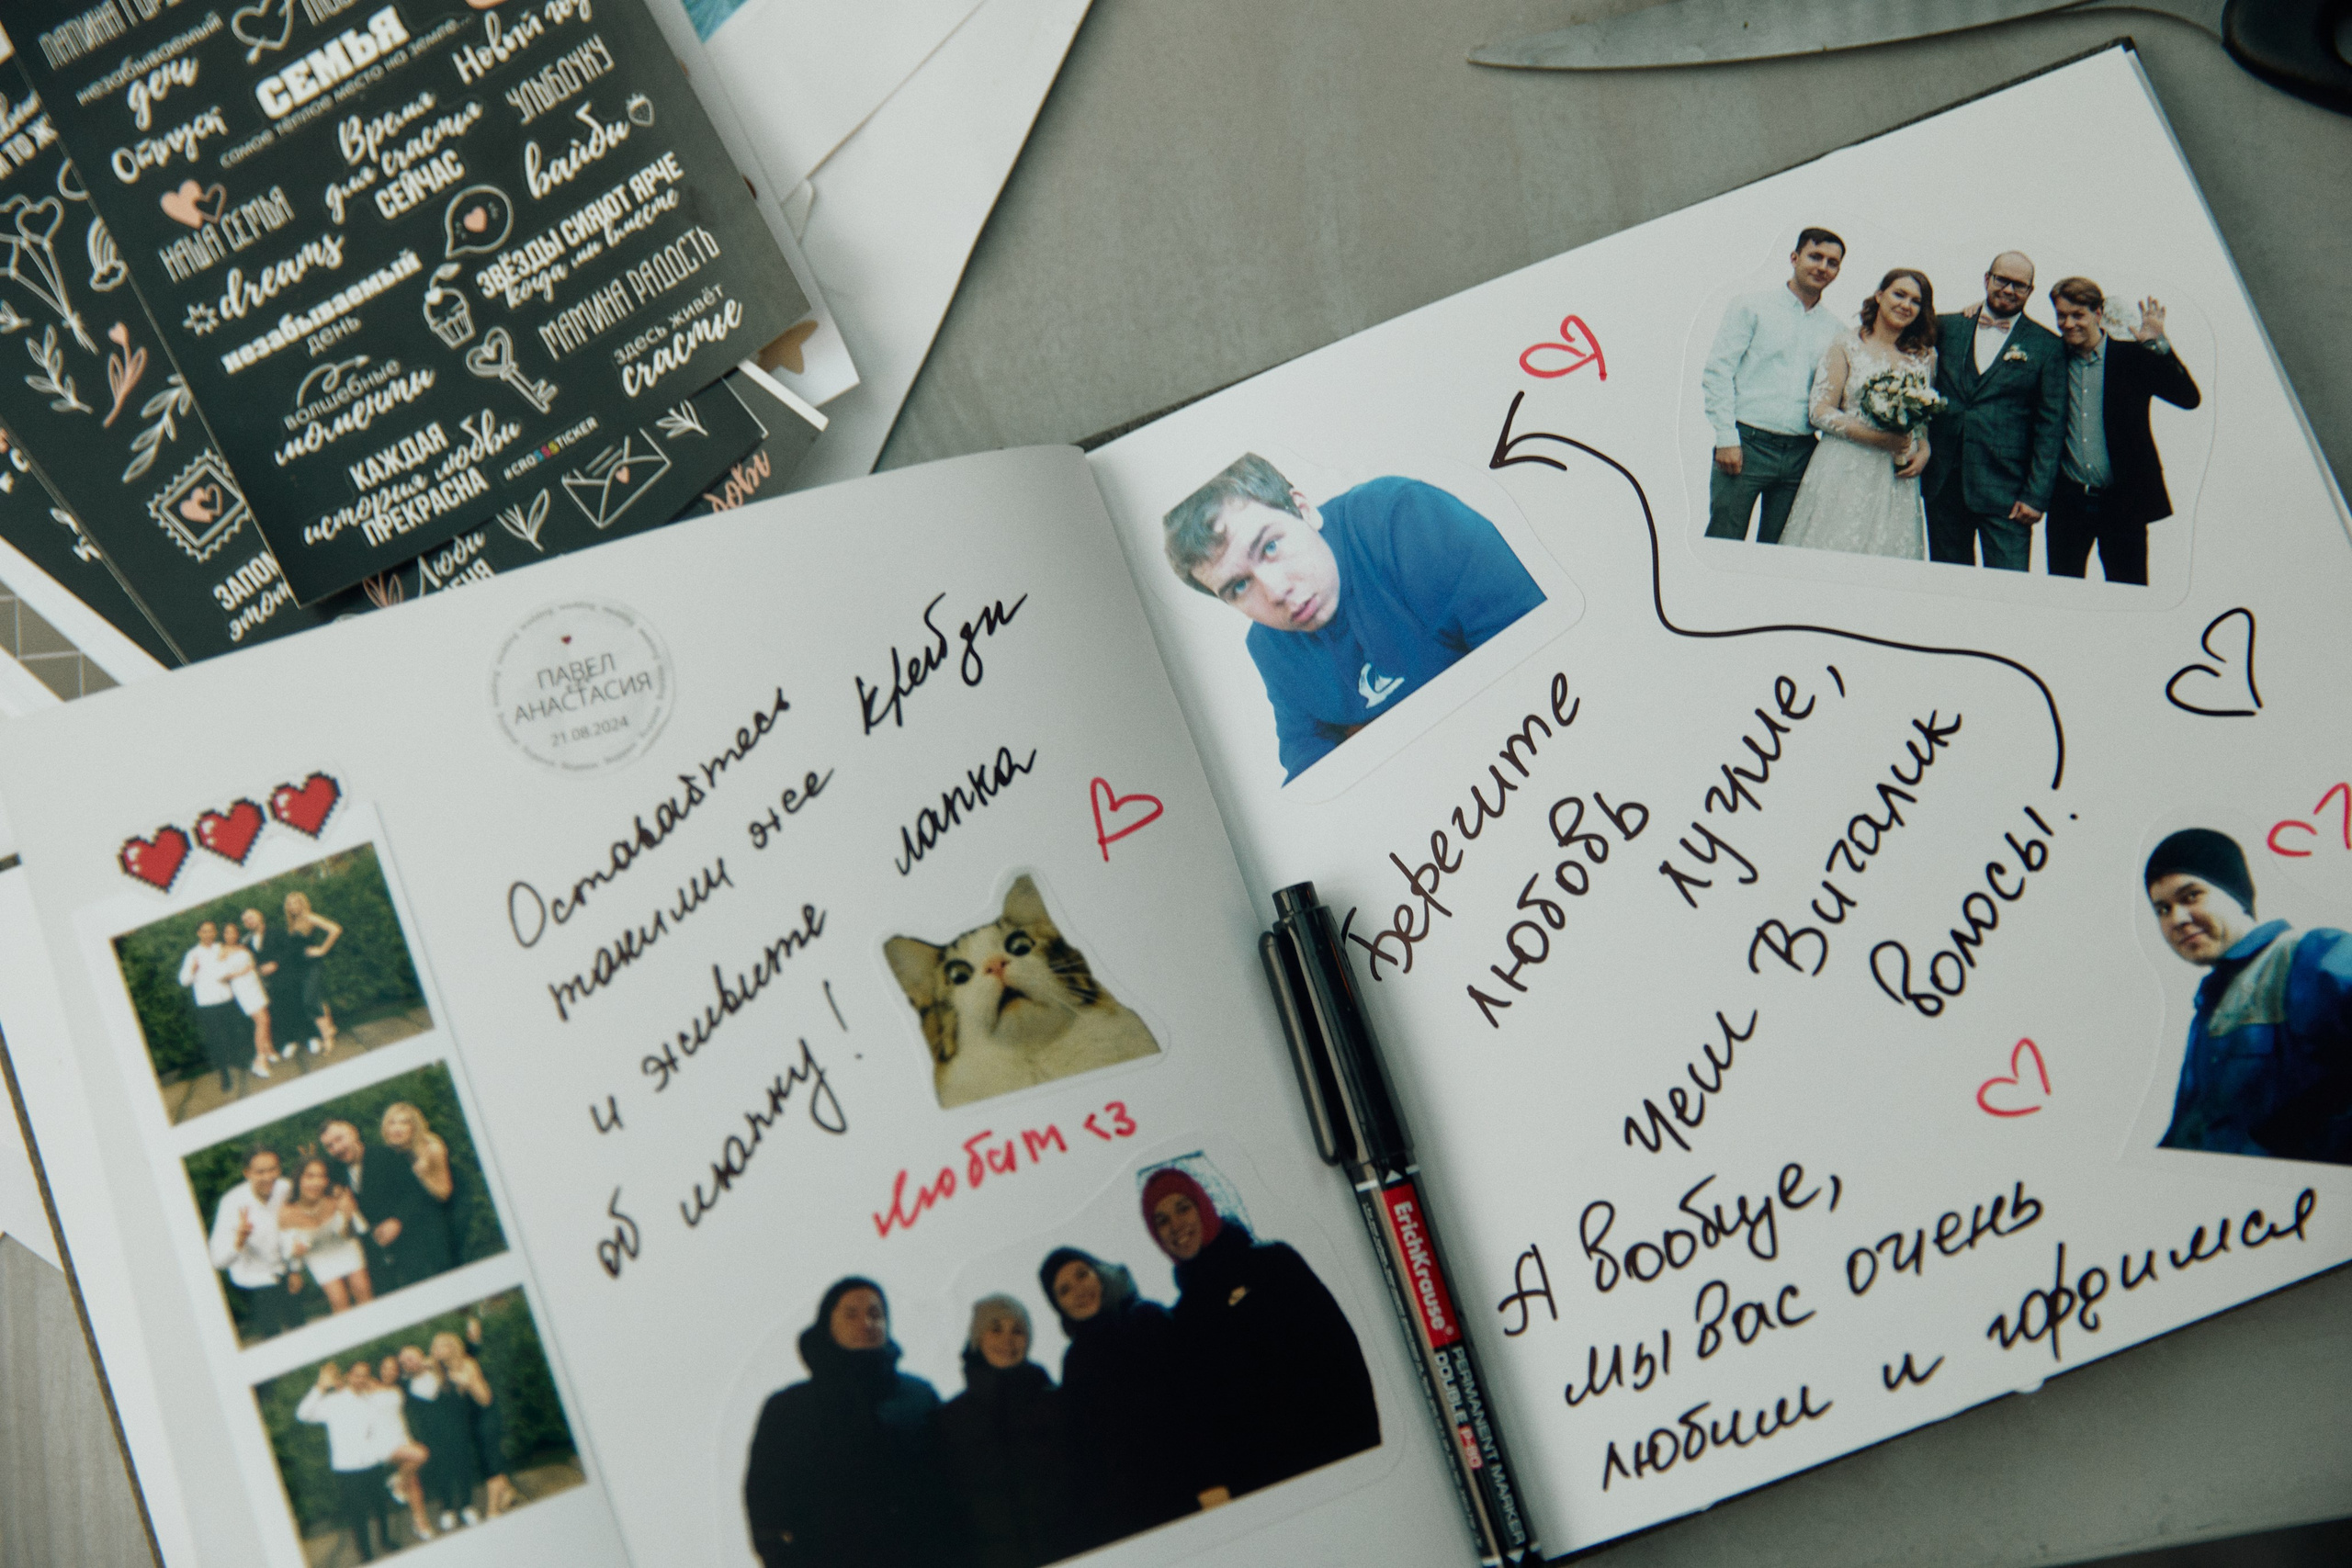 незабываемый
день
СЕМЬЯ
самое тёплое место на земле...
Новый год
Отпуск
Время
для счастья
СЕЙЧАС
УЛЫБОЧКУ
вайби
НАША СЕМЬЯ
dreams
незабываемый
день
ЗВЁЗДЫ СИЯЮТ ЯРЧЕ
когда мы вместе
МАМИНА РАДОСТЬ
здесь живёт
счастье
волшебные
моменты
КАЖДАЯ
история любви
ПРЕКРАСНА
#CROSSSTICKER
Люби
ПАВЕЛ
АНАСТАСИЯ
21.08.2024
Оставайтесь
такими же крейзи
и живите лапка
об шапку!
Любит <3
Берегите
любовь лучше,
чем Виталик
волосы.
А вообще,
мы вас очень
любим и гордимся
ErichKrause®
PERMANENT MARKER
DOUBLE P-80